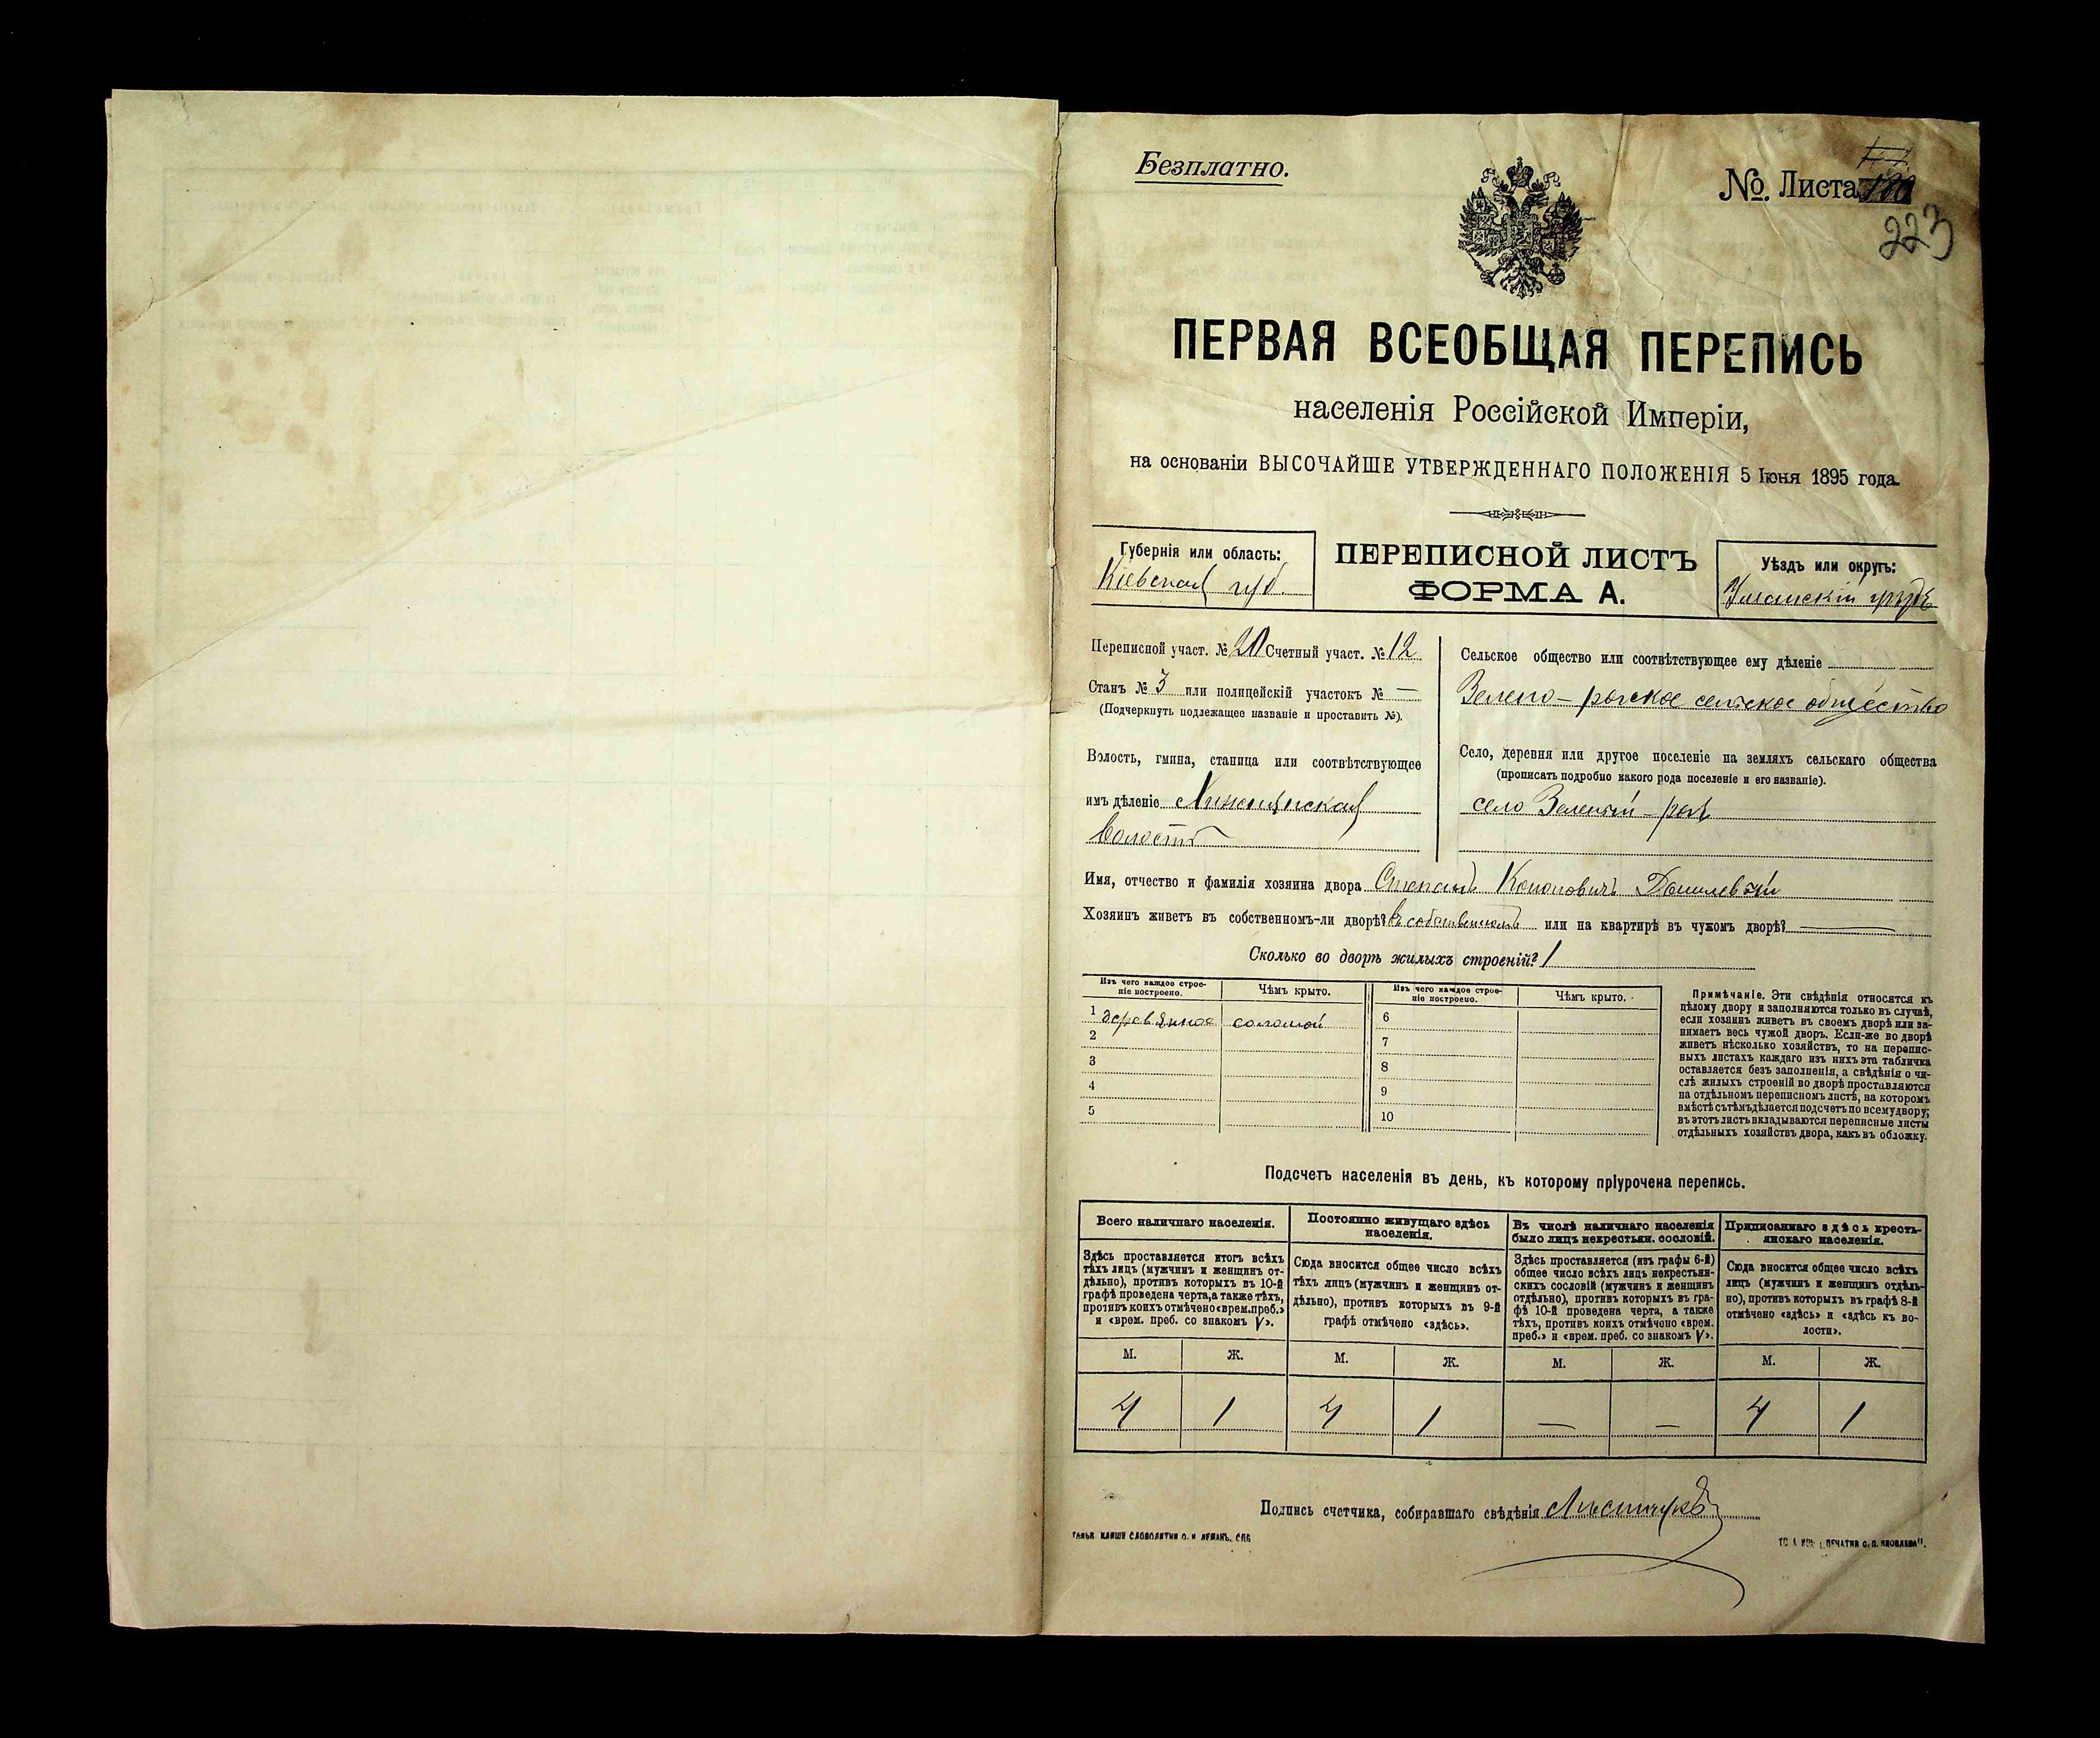 Безплатно.
№. Листа
223
ПЕРВАЯ ВСЕОБЩАЯ ПЕРЕПИСЬ
населенія Россійской Имперіи,
на основаніи ВЫСОЧАЙШЕ УТВЕРЖДЕННАГО ПОЛОЖЕНІЯ 5 Іюня 1895 года.
Губернія или область:
Кіевская губ.
ПЕРЕПИСНОЙ ЛИСТЪ
ФОРМА А.
Уѣздъ или округъ:
Уманскій уѣздъ
Переписной участ. № 20 Счетный участ. № 12
Станъ № 3 или полицейскій участокъ № —
(Подчеркнуть подлежащее названіе и проставить №).
Волость, гмина, станица или соотвѣтствующее
имъ дѣленіе
волость
Сельское общество или соотвѣтствующее ему дѣленіе
Зелено-рогское сельское общество
Село, деревня или другое поселеніе на земляхъ сельскаго общества
(прописать подробно какого рода поселеніе и его названіе).
село Зеленый-рогъ
Имя, отчество и фамилія хозяина двора Степанъ Кононовичъ Данилевскій
Хозяинъ живетъ въ собственномъ-ли дворѣ? въ собственномъ или на квартирѣ въ чужомъ дворѣ? —
Сколько во дворѣ жилыхъ строеній? 1
Изъ чего каждое строе-
ніе построено.
Чѣмъ крыто.
1 деревянное соломой
2
3
4
5
Изъ чего каждое строе-
ніе построено.
Чѣмъ крыто.
6
7
8
9
10
Примѣчаніе. Эти свѣдѣнія относятся къ
цѣлому двору и заполняются только въ случаѣ,
если хозяинъ живетъ въ своемъ дворѣ или за-
нимаетъ весь чужой дворъ. Если-же во дворѣ
живетъ нѣсколько хозяйствъ, то на перепис-
ныхъ листахъ каждаго изъ нихъ эта табличка
оставляется безъ заполненія, а свѣдѣнія о чи-
слѣ жилыхъ строеній во дворѣ проставляются
на отдѣльномъ переписномъ листѣ, на которомъ
вмѣстѣ съ тѣмъ дѣлается подсчетъ по всему двору;
въ этотъ листъ вкладываются переписные листы
отдѣльныхъ хозяйствъ двора, какъ въ обложку.
Подсчетъ населенія въ день, къ которому пріурочена перепись.
Всего наличнаго населенія.
Здѣсь проставляется итогъ всѣхъ
тѣхъ лицъ (мужчинъ и женщинъ от-
дѣльно), противъ которыхъ въ 10-й
графѣ проведена черта, а также тѣхъ,
противъ коихъ отмѣчено «врем. преб.»
и «врем. преб. со знакомъ V».
М. Ж.
4 1
Постоянно живущаго здѣсь
населенія.
Сюда вносится общее число всѣхъ
тѣхъ лицъ (мужчинъ и женщинъ от-
дѣльно), противъ которыхъ въ 9-й
графѣ отмѣчено «здѣсь».
М. Ж.
4 1
Въ числѣ наличнаго населенія
было лицъ некрестьян. сословій.
Здѣсь проставляется (изъ графы 6-й)
общее число всѣхъ лицъ некрестьян-
скихъ сословій (мужчинъ и женщинъ
отдѣльно), противъ которыхъ въ гра-
фѣ 10-й проведена черта, а также
тѣхъ, противъ коихъ отмѣчено «врем.
преб.» и «врем. преб. со знакомъ V».
М. Ж.
— —
Приписаннаго здѣсь кресть-
янскаго населенія.
Сюда вносится общее число всѣхъ
лицъ (мужчинъ и женщинъ отдѣль-
но), противъ которыхъ въ графѣ 8-й
отмѣчено «здѣсь» и «здѣсь къ во-
лости».
М. Ж.
4 1
Подпись счетчика, собиравшаго свѣдѣнія
КЛИШЕ СЛОВОЛИТНИ О. И. ЛЕМАНЪ, СПБ
ПЕЧАТНИ С. П. ЯКОВЛЕВА".